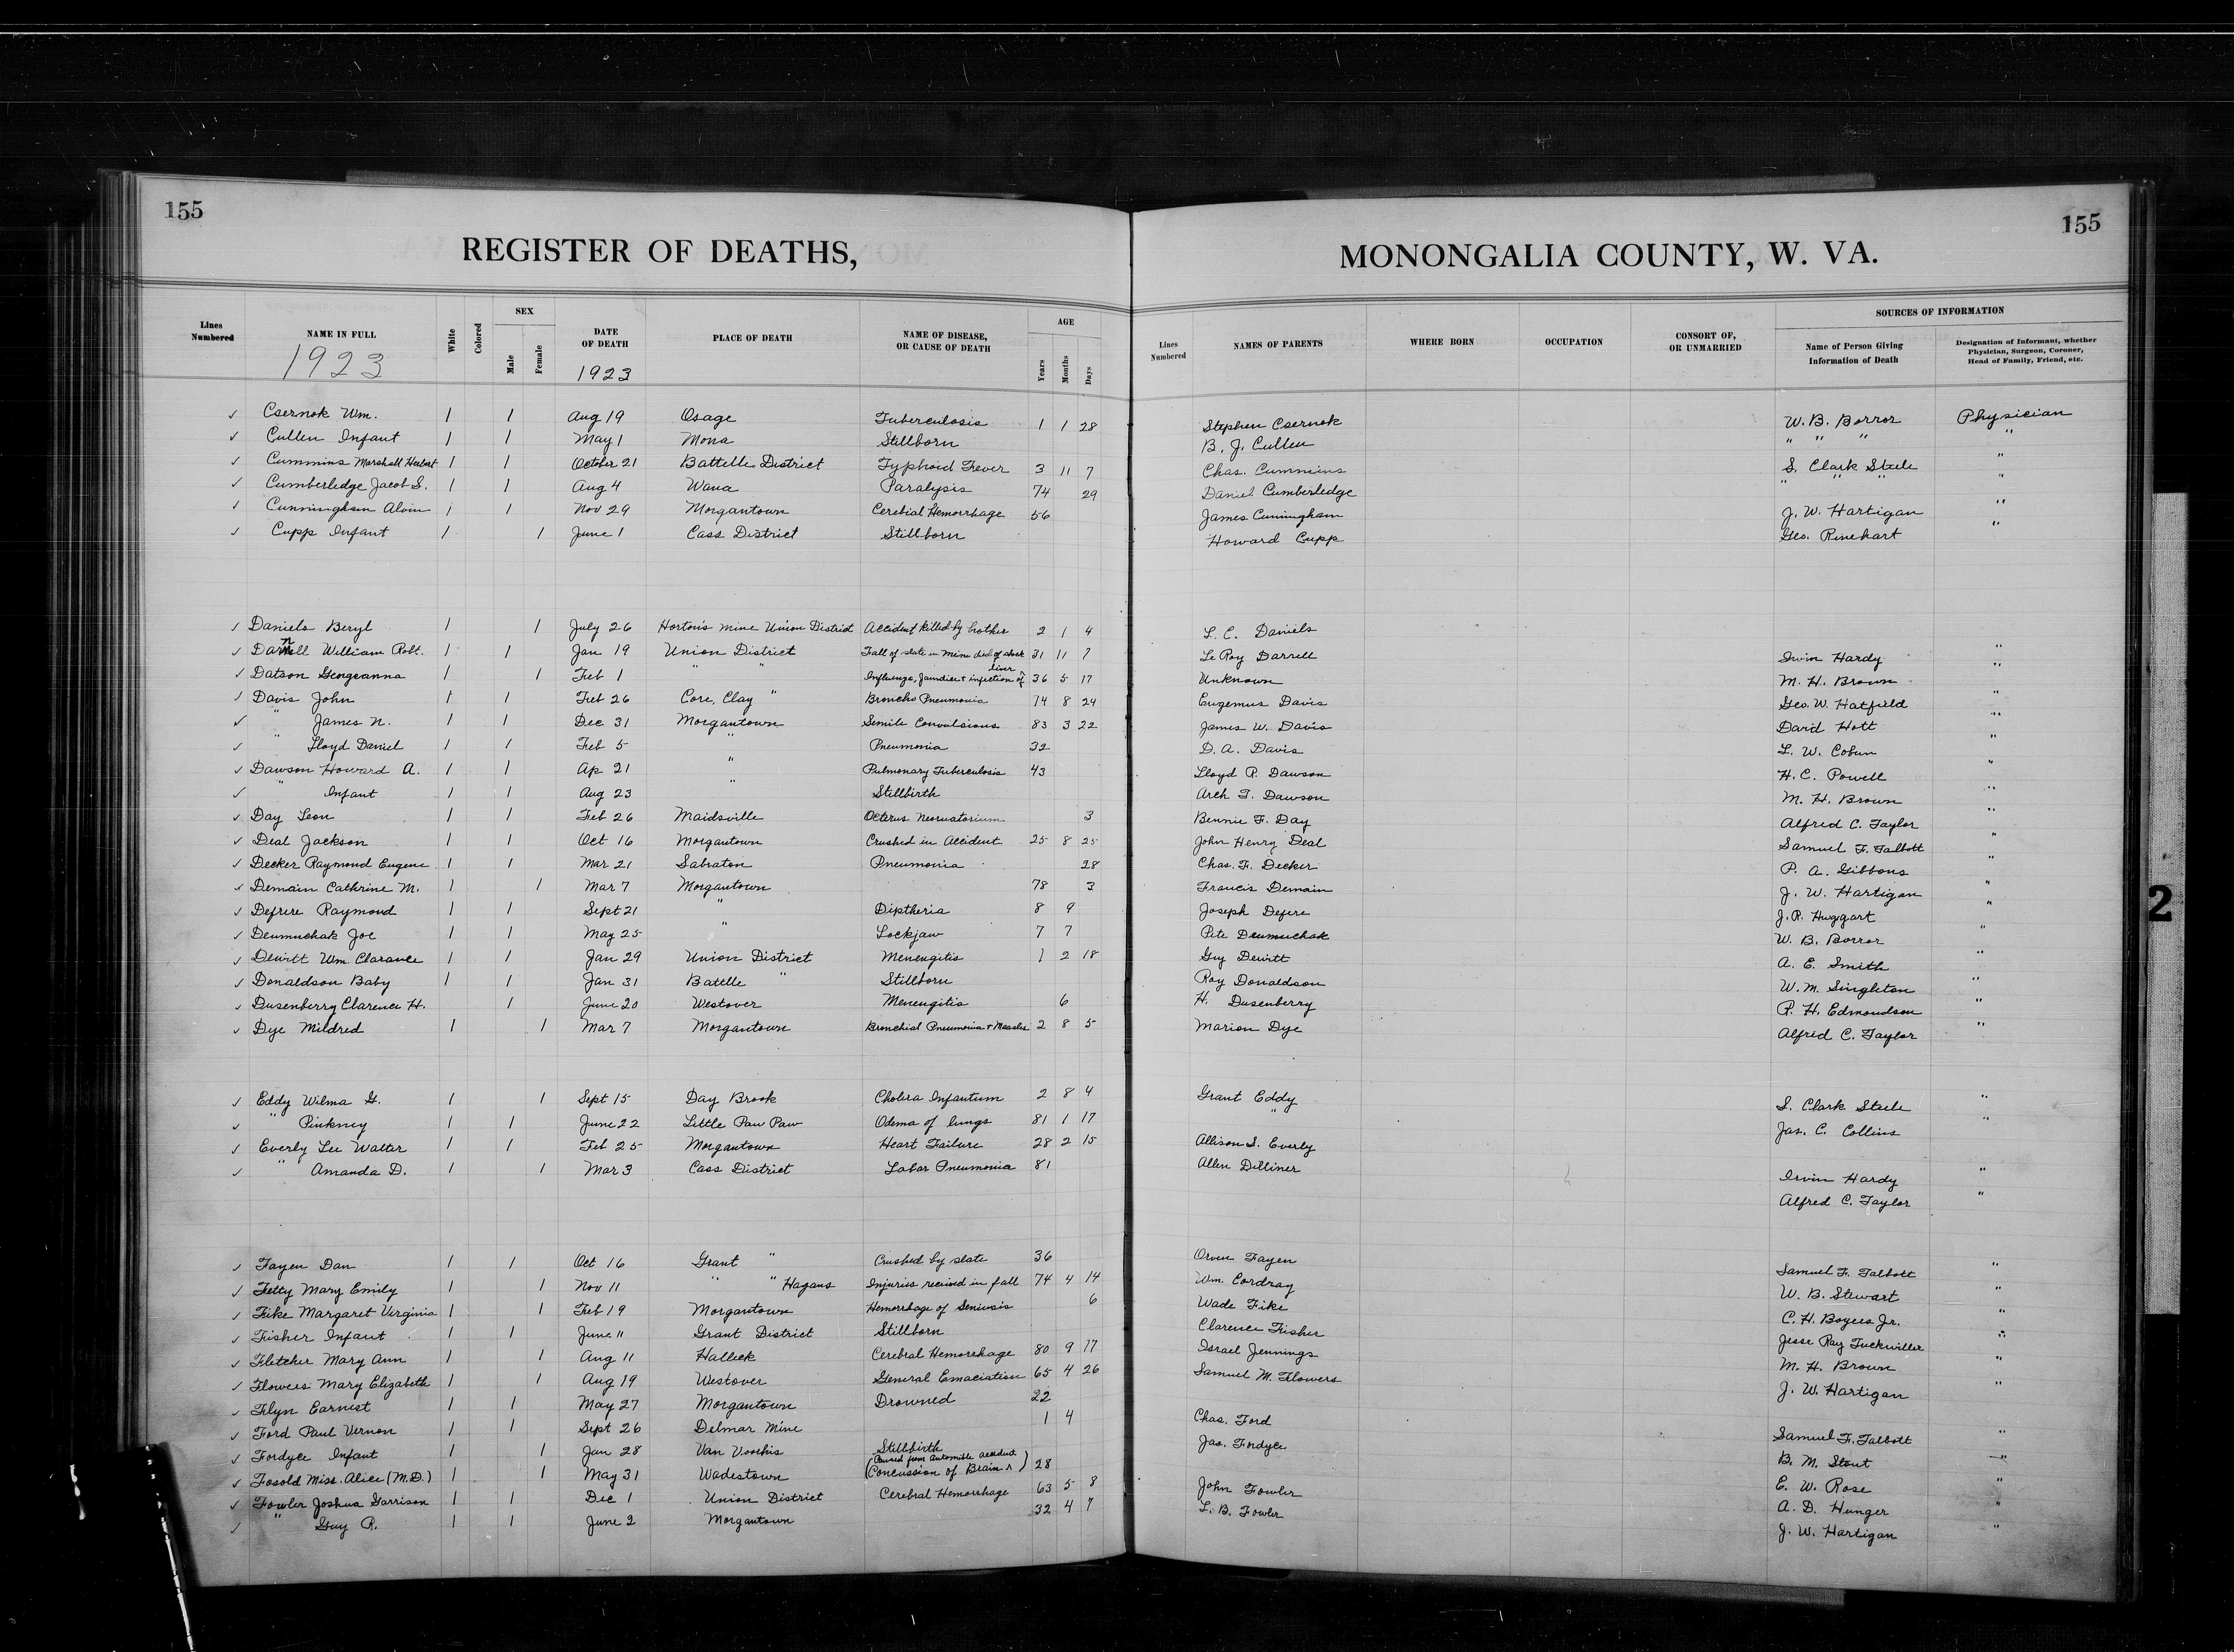 155
REGISTER OF DEATHS,
Lines Numbered NAME IN FULL White Colored SEX Male Female DATE OF DEATH PLACE OF DEATH NAME OF DISEASE, OR CAUSE OF DEATH AGE Years Months Days
1923 1923
✓ Csernok Wm. 1 1 Aug 19 Osage Tuberculosis 1 1 28
✓ Cullen Infant 1 1 May 1 Mona Stillborn
✓ Cummins Marshall Herbert 1 1 October 21 Battelle District Typhoid Fever 3 11 7
✓ Cumberledge Jacob S. 1 1 Aug 4 Wana Paralysis 74 29
✓ Cunningham Alvin 1 1 Nov 29 Morgantown Cerebial Hemorrhage 56
✓ Cupp Infant 1 1 June 1 Cass District Stillborn
✓ Daniels Beryl 1 1 July 26 Horton's mine Union District Accident killed by brother 2 1 4
✓ Darnell William Robt. 1 1 Jan 19 Union District Fall of slate in mine died of shock 31 11 7
✓ Datson Georgeanna 1 1 Feb 1 " " Influenza, Jaundice & infection of liver 36 5 17
✓ Davis John 1 1 Feb 26 Core, Clay " Broncho Pneumonia 74 8 24
✓ " James N. 1 1 Dec 31 Morgantown Senile Convulsions 83 3 22
✓ " Lloyd Daniel 1 1 Feb 5 " Pneumonia 32
✓ Dawson Howard A. 1 1 Ap 21 " Pulmonary Tuberculosis 43
✓ " Infant 1 1 Aug 23 " Stillbirth
✓ Day Leon 1 1 Feb 26 Maidsville Octerus Neornatorium 3
✓ Deal Jackson 1 1 Oct 16 Morgantown Crushed in Accident 25 8 25
✓ Decker Raymond Eugene 1 1 Mar 21 Sabraton Pneumonia 28
✓ Demain Cathrine M. 1 1 Mar 7 Morgantown 78 3
✓ Defrere Raymond 1 1 Sept 21 " Diptheria 8 9
✓ Deumuchak Joe 1 1 May 25 " Lockjaw 7 7
✓ Dewitt Wm. Clarance 1 1 Jan 29 Union District Menengitis 1 2 18
✓ Donaldson Baby 1 1 Jan 31 Batelle " Stillborn
✓ Dusenberry Clarence H. 1 June 20 Westover Menengitis 6
✓ Dye Mildred 1 1 Mar 7 Morgantown Bronchial Pneumonia & Measles 2 8 5
✓ Eddy Wilma G. 1 1 Sept 15 Day Brook Cholera Infantum 2 8 4
✓ " Pinkney 1 1 June 22 Little Paw Paw Odema of lungs 81 1 17
✓ Everly Lee Walter 1 1 Feb 25 Morgantown Heart Failure 28 2 15
✓ " Amanda D. 1 1 Mar 3 Cass District Lobar Pneumonia 81
✓ Fayen Dan 1 1 Oct 16 Grant " Crushed by slate 36
✓ Fetty Mary Emily 1 1 Nov 11 " " Hagans Injuries received in fall 74 4 14
✓ Fike Margaret Virginia 1 1 Feb 19 Morgantown Hemorrhage of 6
✓ Fisher Infant 1 1 June 11 Grant District Stillborn
✓ Fletcher Mary Ann 1 1 Aug 11 Halleck Cerebral Hemorrhage 80 9 17
✓ Flowers Mary Elizabeth 1 1 Aug 19 Westover General Emaciation 65 4 26
✓ Flyn Earnest 1 1 May 27 Morgantown Drowned 22
✓ Ford Paul Vernon 1 1 Sept 26 Delmar Mine 1 4
✓ Fordyce Infant 1 1 Jan 28 Van Voorhis Stillbirth
✓ Fosold Miss. Alice (M.D.) 1 1 May 31 Wadestown (Concussion of Brain ^ Caused from Automobile accident) 28
✓ Fowler Joshua Garrison 1 1 Dec 1 Union District Cerebral Hemorrhage 63 5 8
✓ " Guy R. 1 1 June 2 Morgantown 32 4 7
155
MONONGALIA COUNTY, W. VA.
Lines Numbered NAMES OF PARENTS WHERE BORN OCCUPATION CONSORT OF, OR UNMARRIED SOURCES OF INFORMATION Name of Person Giving Information of Death Designation of Informant, whether Physician, Surgeon, Coroner, Head of Family, Friend, etc.
Stephen Csernok W. B. Borror Physician
B. J. Cullen " " " "
Chas. Cummins S. Clark Steele "
Daniel Cumberledge " " " "
James Cuningham J. W. Hartigan "
Howard Cupp Geo. Rinehart "
L. C. Daniels "
Le Roy Darrell Irvin Hardy "
Unknown M. H. Brown "
Eugemus Davis Geo. W. Hatfield "
James W. Davis David Hott "
D. A. Davis L. W. Cobun "
Lloyd R. Dawson H. C. Powell "
Arch T. Dawson M. H. Brown "
Bennie F. Day Alfred C. Taylor "
John Henry Deal Samuel F. Talbott "
Chas. F. Decker P. A. Gibbons "
Francis Demain J. W. Hartigan "
Joseph Defere J. P. Huggart "
Pete Deumuchak W. B. Borror "
Guy Dewitt A. E. Smith "
Roy Donaldson W. M. Singleton "
H. Dusenberry P. H. Edmondson "
Marion Dye Alfred C. Taylor "
Grant Eddy S. Clark Steele "
" Jas. C. Collins "
Allison S. Everly Irvin Hardy "
Allen Dilliner Alfred C. Taylor "
Orven Fayen Samuel F. Talbott "
Wm. Cordray W. B. Stewart "
Wade Fike C. H. Boyers Jr. "
Clarence Fisher Jesse Ray Tuckwiller "
Israel Jennings M. H. Brown "
Samuel M. Flowers J. W. Hartigan "
Chas. Ford Samuel F. Talbott "
Jas. Fordyce B. M. Stout "
E. W. Rose "
John Fowler A. D. Hunger "
L. B. Fowler J. W. Hartigan "
2